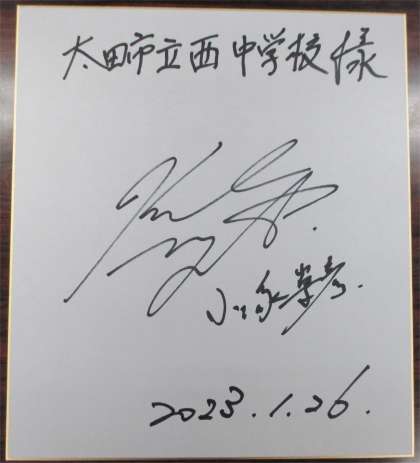 太田市立西中学校様
小塚崇彦.
2023.1.26.